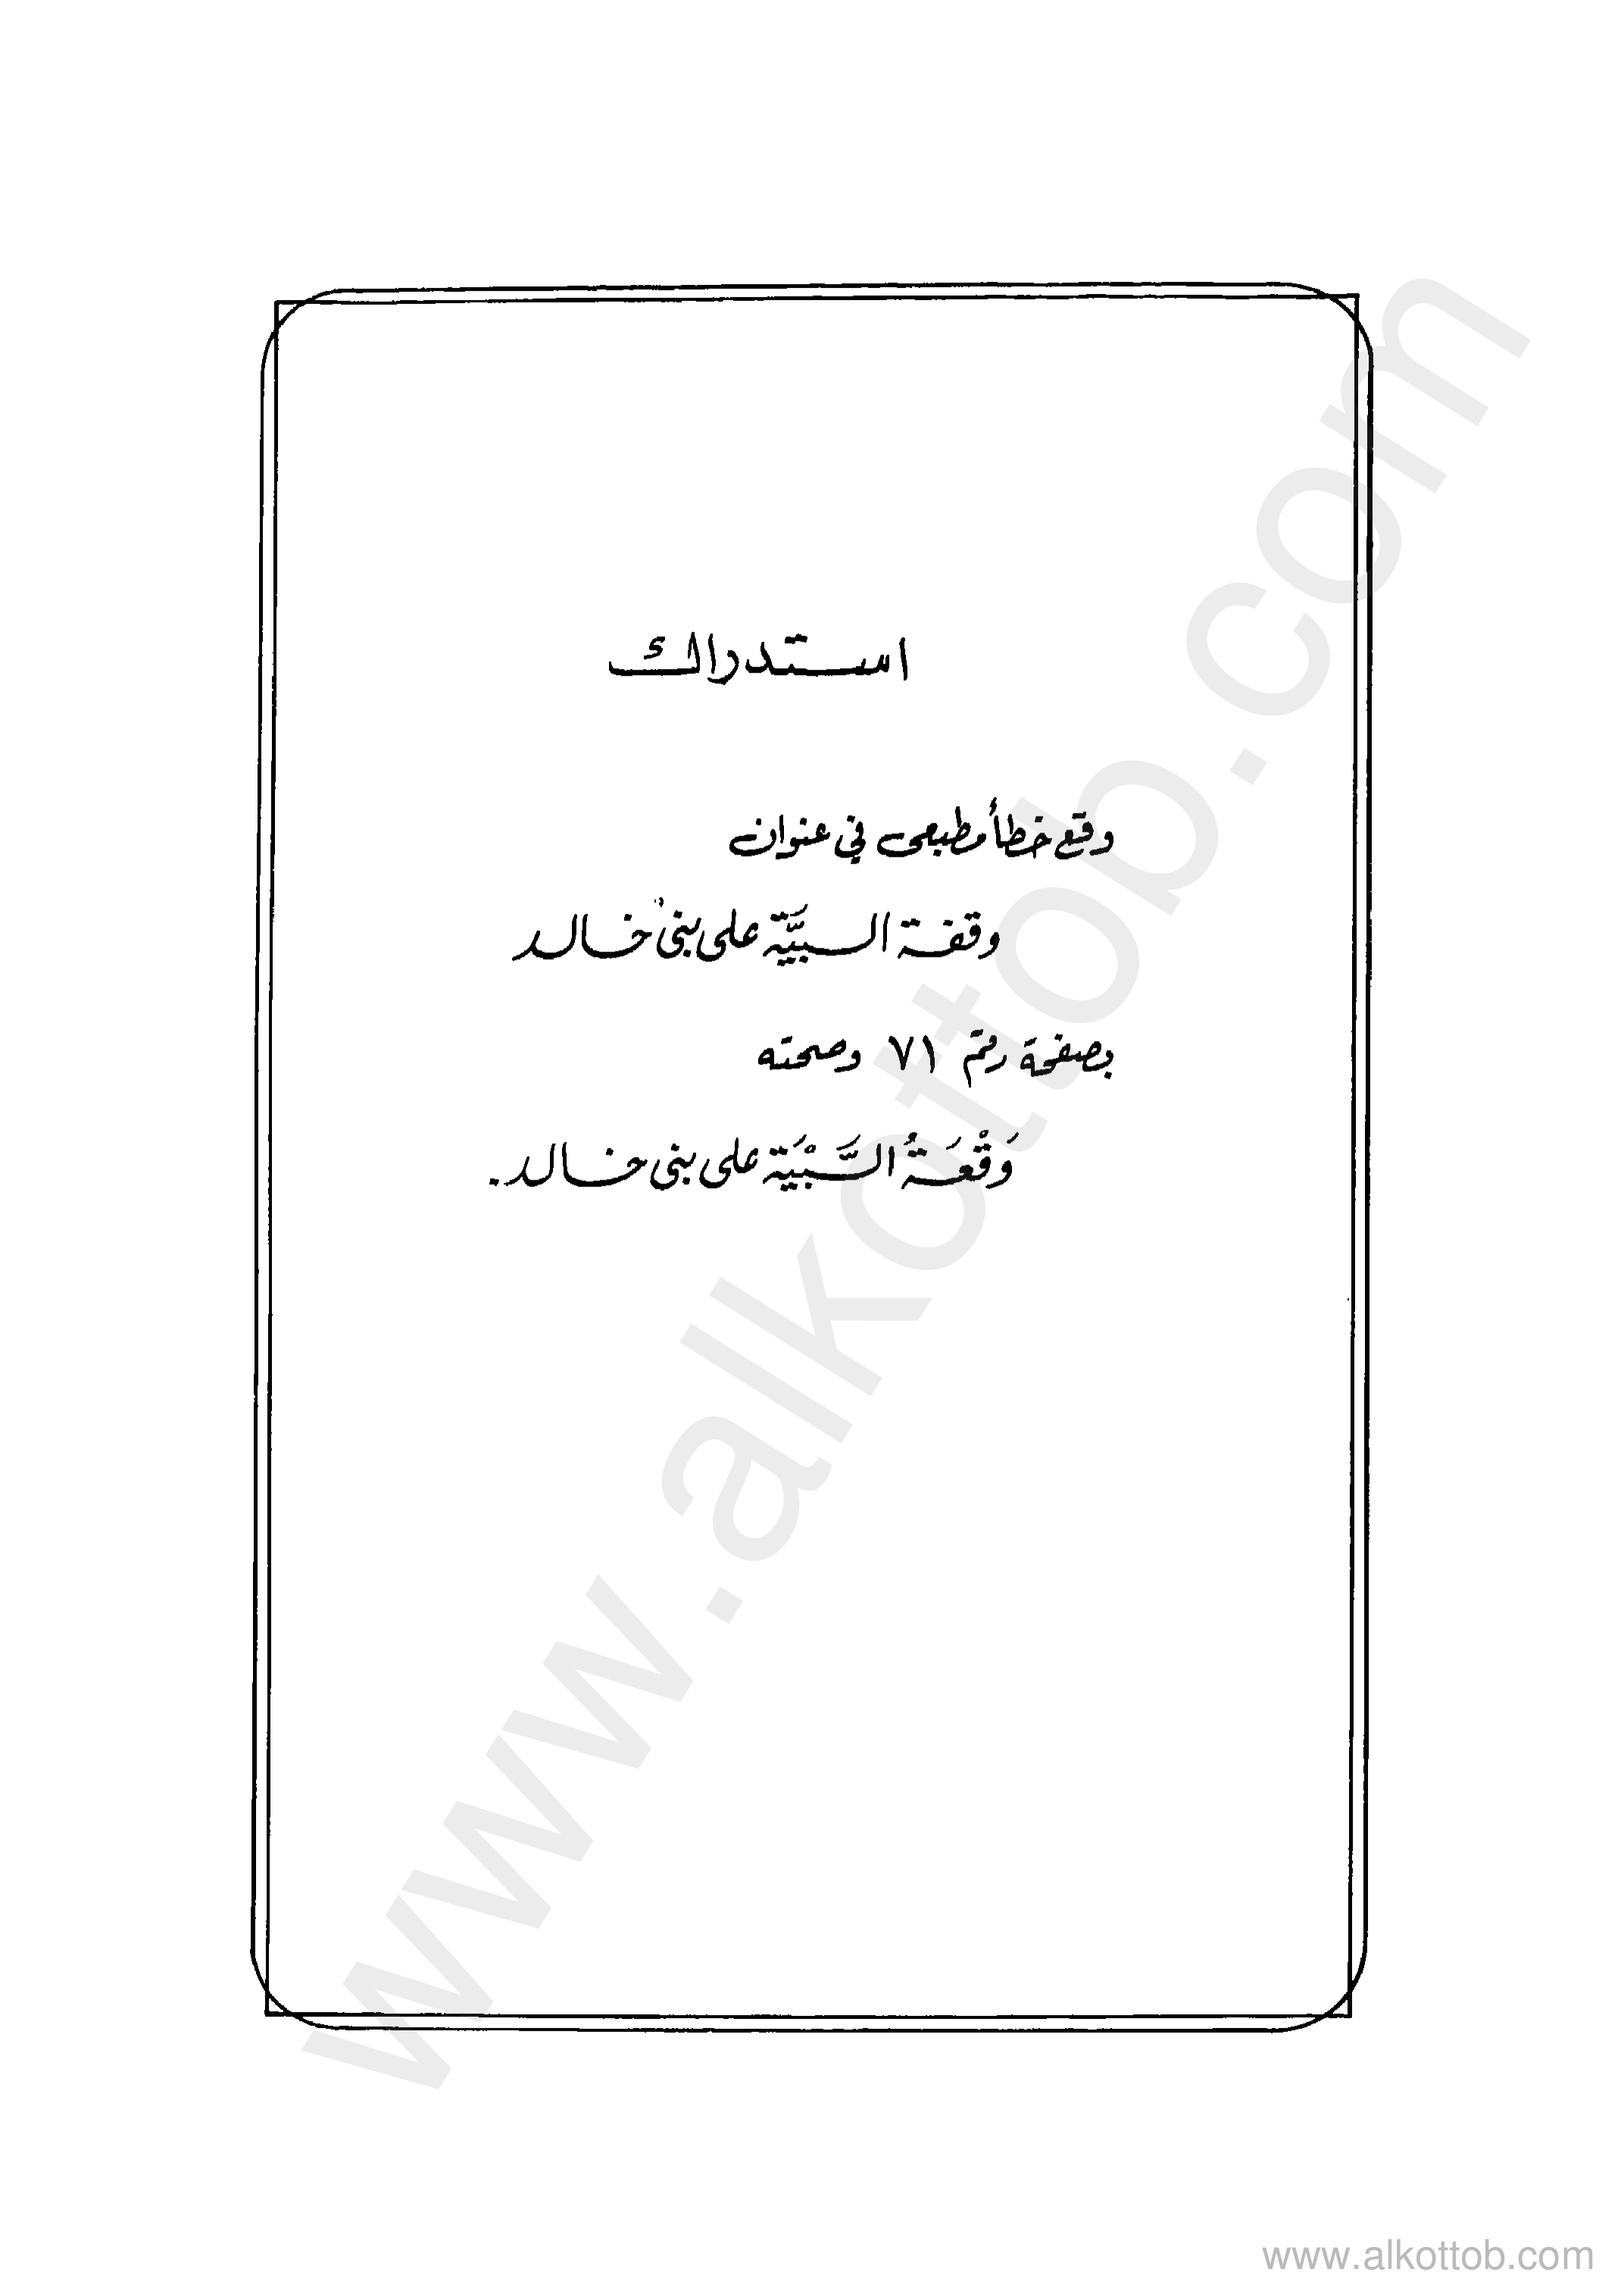 استدراك
وقع خطأ مطبعى في عنوان
وقفة السبيَّة على بنى خالد
بصفحة رقم ٧١ وصحته
وَقْعَةُ السَّبْيَة على بنى خالد.
www.alkottob.com
www.alkottob.com